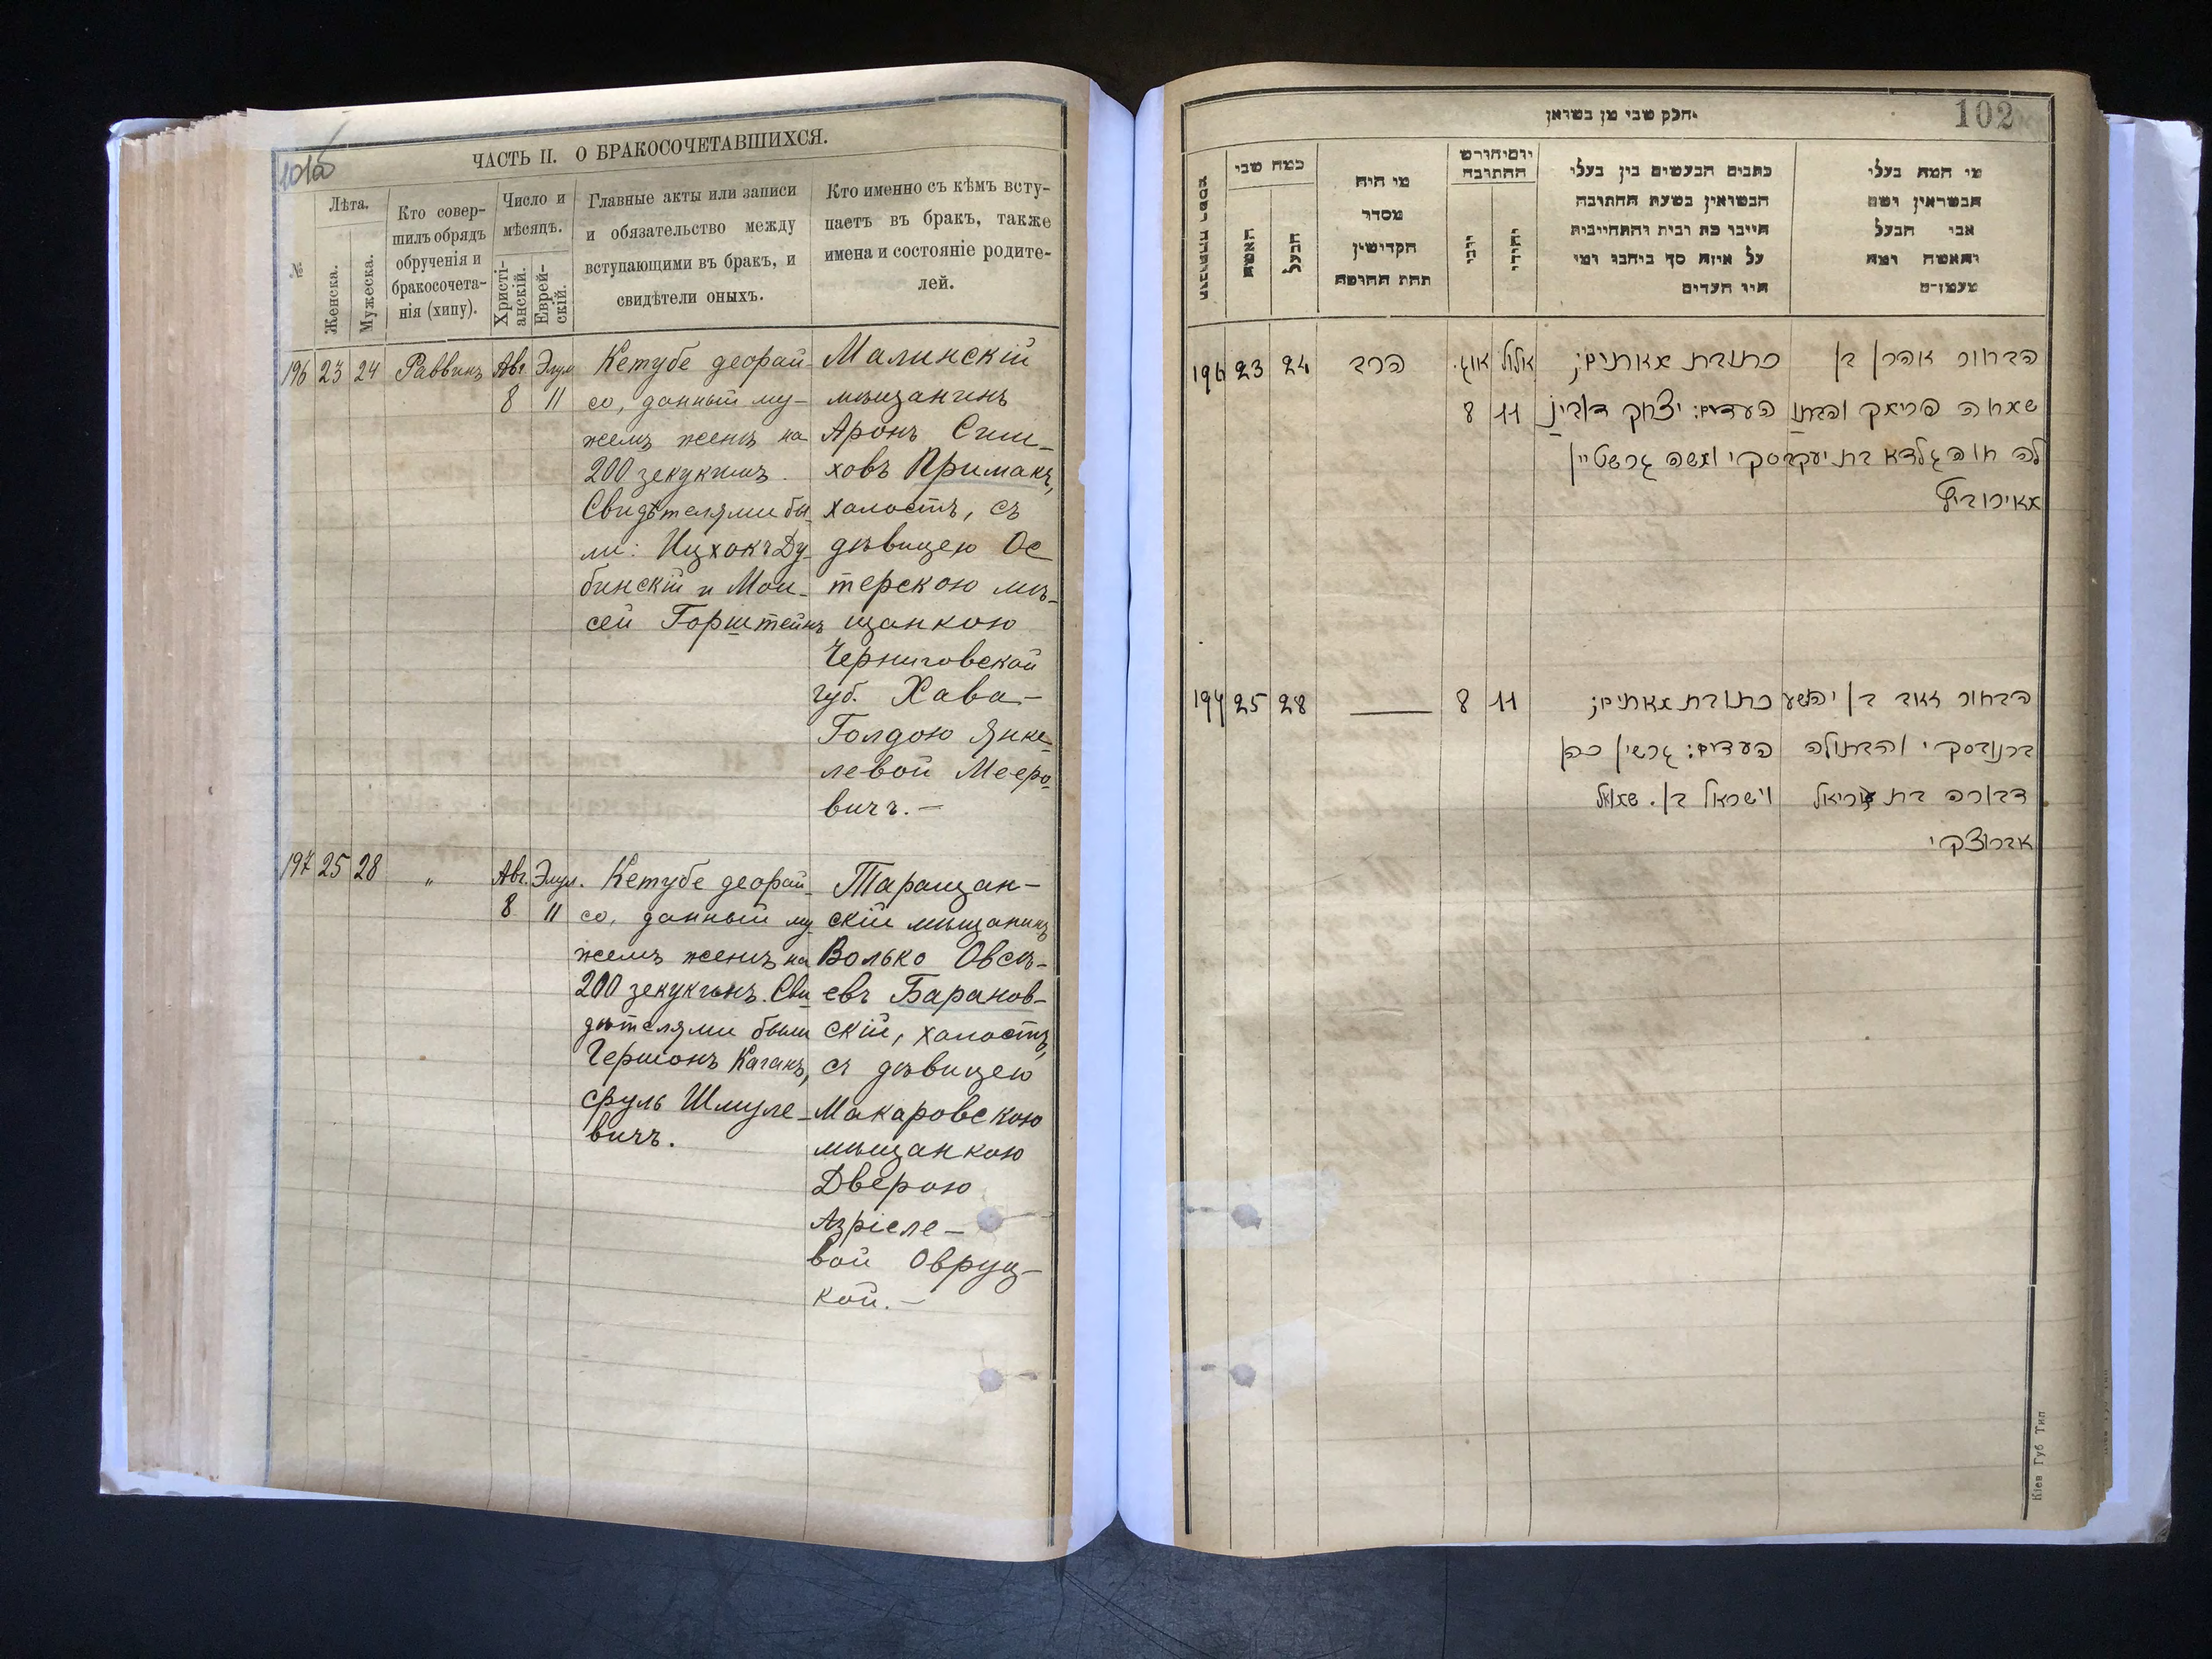 101об
ЧАСТЬ II. О БРАКОСОЧЕТАВШИХСЯ.
№
Лѣта.
Женска.
Мужеска.
Кто совер-
шилъ обрядъ
обрученія и
бракосочета-
нія (хипу).
Число и
мѣсяцъ.
Христі-
анскій.
Еврей-
скій.
Главные акты или записи
и обязательство между
вступающими въ бракъ, и
свидѣтели оныхъ.
Кто именно съ кѣмъ всту-
паетъ въ бракъ, также
имена и состояніе родите-
лей.
196 23 24 Раввинъ Авг. Элул
8 11
Кетубе деорай-
со, данный му-
жемъ женѣ на
200 зекукимъ.
Свидѣтелями бы-
ли: Ицхокъ Ду-
бинскій и Мои-
сей Горштейнъ
Малинскій
мѣщанинъ
Аронъ Сим-
ховъ Примакъ,
холостъ, съ
дѣвицею Ос
терскою мѣ-
щанкою
Черниговской
губ. Хава-
Голдою Янке-
левой Мееро-
вичъ.-
197 25 28 " Авг. Элул.
8 11
Кетубе деорай-
со, данный му
жемъ женѣ на
200 зекукимъ. Сви
дѣтелями были
Гершонъ Каганъ,
Сруль Шмуле-
вичъ.
Таращан-
скій мѣщанинъ
Волько Овсѣ-
евъ Баранов-
скій, холостъ,
съ дѣвицею
Макаровскою
мѣщанкою
Дверою
Азріеле-
вой Овруц-
кой.-
102
חלק שני מן נשואין
כמה שני
האשה
הבעל
מי היה
מסדר
הקדושין
תחת החופה
יום וחודש
החתונה
יהודי
כתבים הנעשים בין בעלי
הנשואין בשעת החתונה
על איזה סך ניתנו ומי
היו העדים
מי המה בעלי
הנשואין ושם
אבי הבעל
והאשה ומה
מעמדם
196 23 24 הרב אוג. אלול
8 11
כתובת מאתים;
העדים: יצחק דובינ
סקי ומשה גרשטיין
הבחור אהרן בן
שמחה פרימאק והבתו
לה חוה גלדא בת יעקב
מאירוביץ
197 25 28 8 11
כתובת מאתים;
העדים: גרשון כהן
וישראל בן שמואל
הבחור זאב בן יהושע
ברנובסקי והבתולה
דבורה בת עזריאל
אברוצקי
Кіев Губ Тип